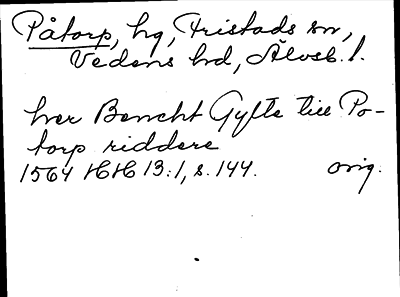 Påtorp, hg, Fristads sn,
Vedens hd, Älvsb. l.
her Bencht Gyfte till Po-
torp riddere
1564 HH 13:1, s. 144. orig.